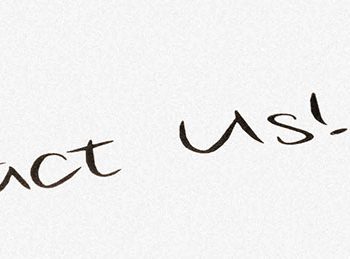 act us!